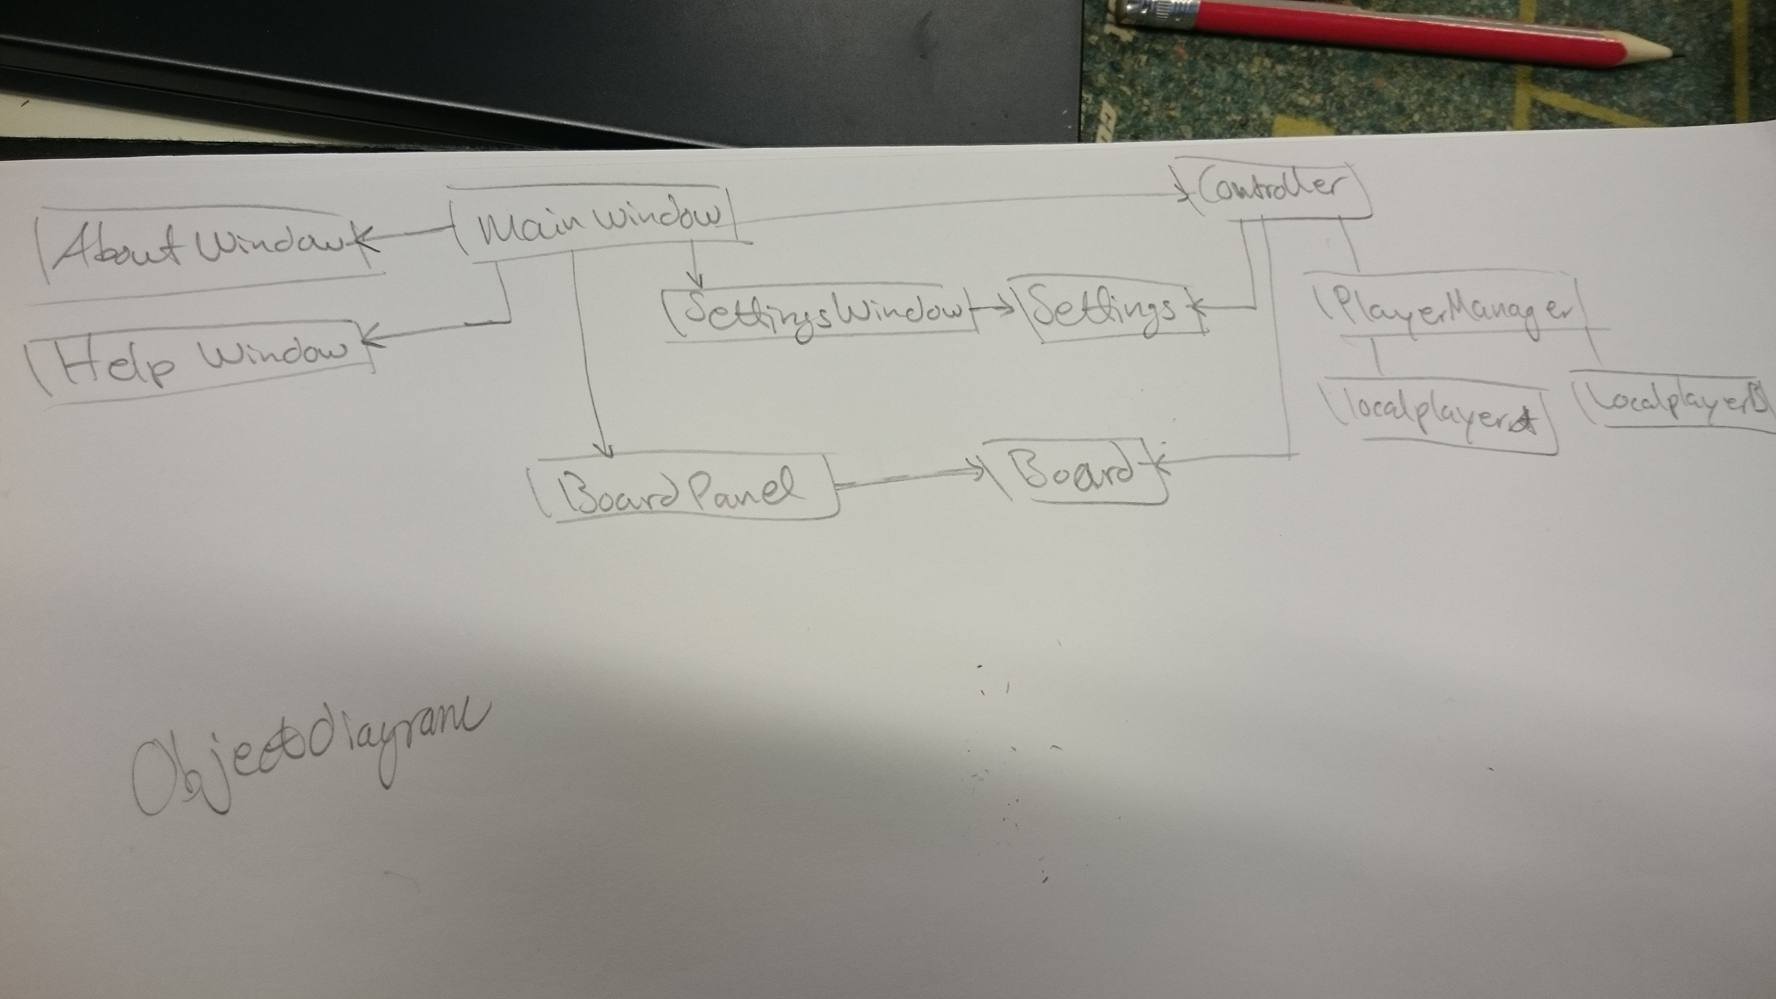 About Window
Main Window
Controller
Help Window
SettingsWindow
Settings
PlayerManager
localplayerA
LocalplayerB
BoardPanel
Board
Objectdiagram